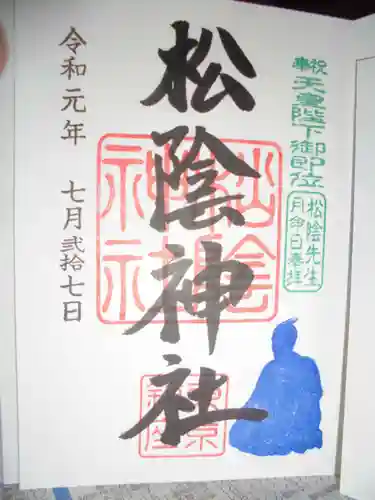 奉祝
天皇陛下御即位
松陰先生
月命日奉拝
松陰神社
松陰神社
令和元年 七月弐拾七日